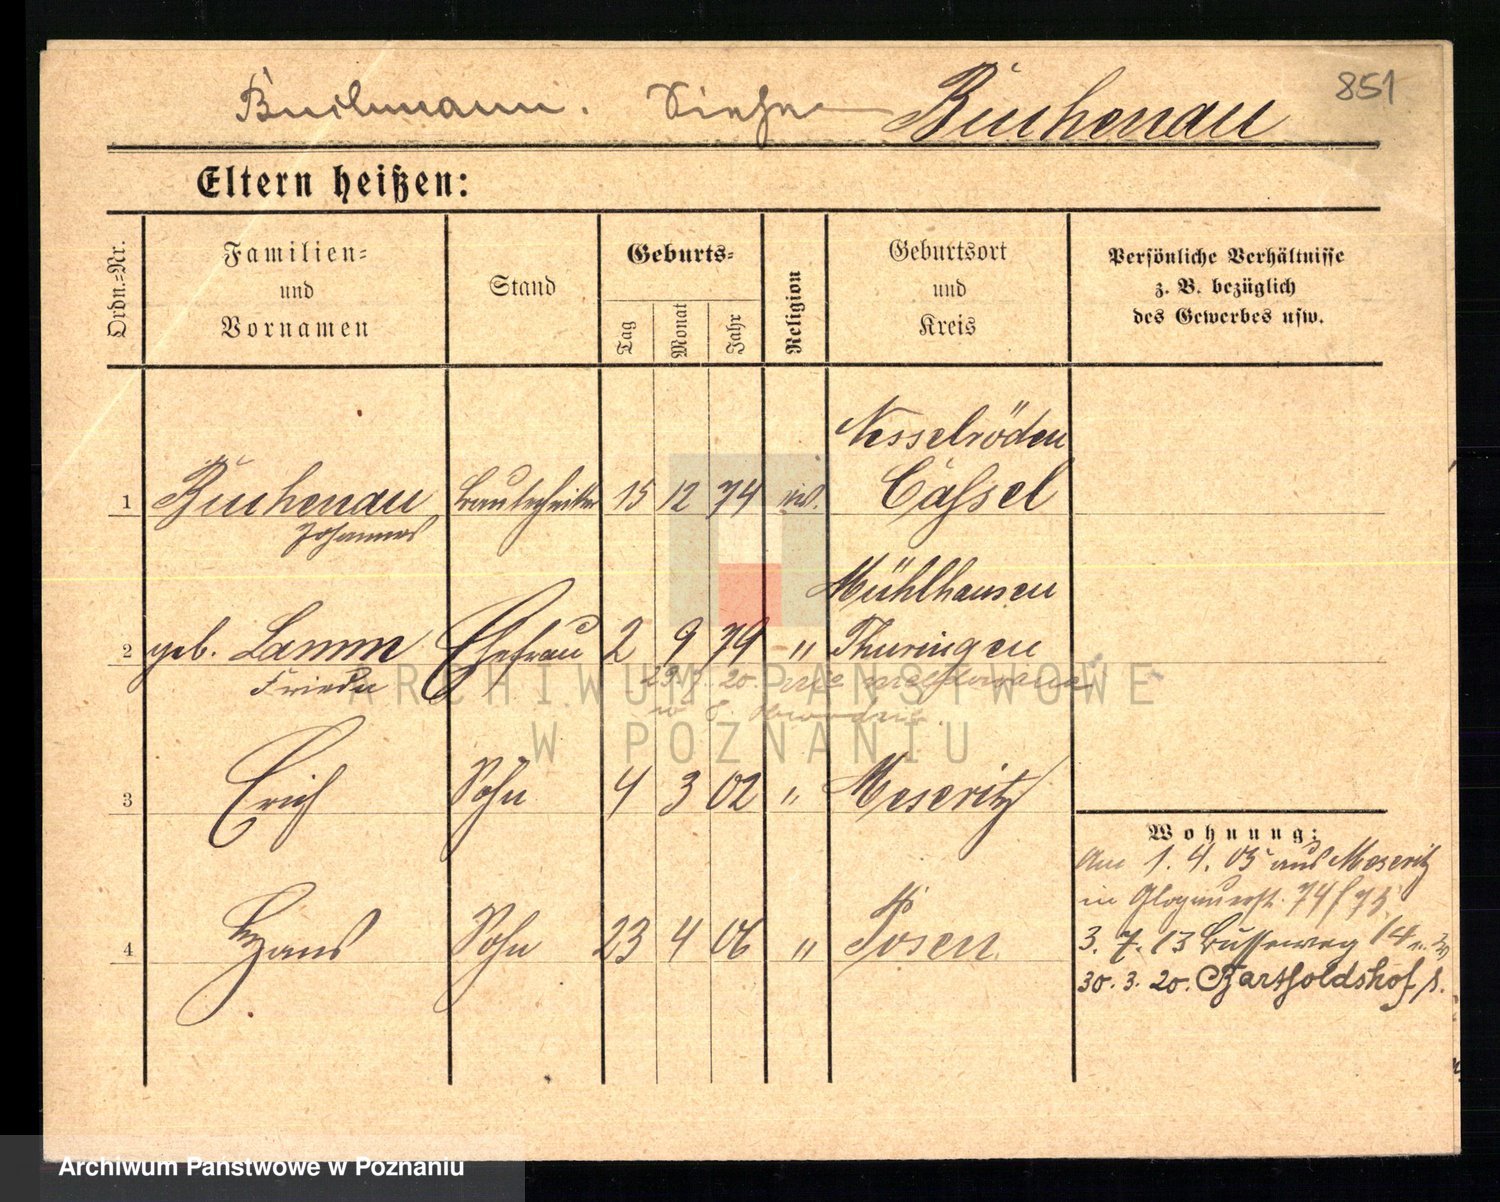 Buchmann. Siehe Buchenau 851
Eltern heißen:
Ordn.=Nr.
Familien=
und
Vornamen
Stand
Geburts=
Tag Monat Jahr
Religion
Geburtsort
und
Kreis
Persönliche Verhältnisse
z. B. bezüglich
des Gewerbes usw.
Nesselröden
1 Buchenau Bautechniker 15 12 74 Cassel
Johannes
Mühlhausen
2 geb. Lamm Ehefrau 2 9 79 " Thuringen
Frieda
3 Erich Sohn 4 3 02 " Meseritz
4 Hans Sohn 23 4 06 " Posen
Wohnung:
Am 1. 4. 05 aus Meseritz
in Glogauerst. 74/75
3. 7. 13 14
30. 3. 20. Bartholdshof
ARCHIWUM PAŃSTWOWE
W POZNANIU
Archiwum Państwowe w Poznaniu